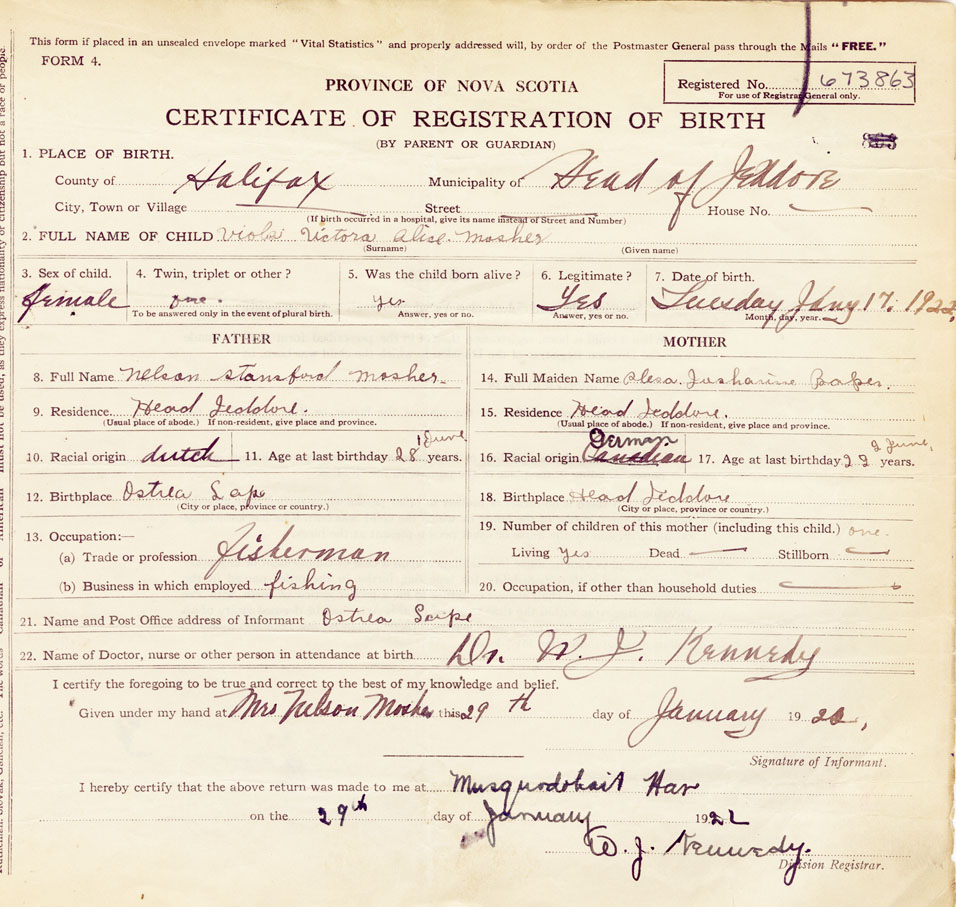 This form if placed in an unsealed envelope marked "Vital Statistics" and properly addressed will, by order of the Postmaster General pass through the Mails "FREE."
FORM 4.
PROVINCE OF NOVA SCOTIA
Registered No. 673863
For use of Registrar General only.
CERTIFICATE OF REGISTRATION OF BIRTH
(BY PARENT OR GUARDIAN)
1. PLACE OF BIRTH.
County of Halifax Municipality of Head of Jeddore
City, Town or Village Street House No.
(If birth occurred in a hospital, give its name instead of Street and Number)
2. FULL NAME OF CHILD Viola Victora Alice Mosher
(Surname) (Given name)
3. Sex of child. 4. Twin, triplet or other? 5. Was the child born alive? 6. Legitimate? 7. Date of birth.
female one. yes Yes Tuesday Jany 17. 1922,
To be answered only in the event of plural birth. Answer, yes or no. Answer, yes or no. Month, day, year.
FATHER MOTHER
8. Full Name Nelson Stansford Mosher. 14. Full Maiden Name
9. Residence Head Jeddore. 15. Residence Head Jeddore.
(Usual place of abode.) If non-resident, give place and province. (Usual place of abode.) If non-resident, give place and province.
1 June German 2 June
10. Racial origin dutch 11. Age at last birthday 28 years. 16. Racial origin Canadian 17. Age at last birthday 22 years.
12. Birthplace Ostrea 18. Birthplace Head Jeddore
(City or place, province or country.) (City or place, province or country.)
13. Occupation:— 19. Number of children of this mother (including this child.) one.
(a) Trade or profession fisherman Living yes Dead — Stillborn —
(b) Business in which employed fishing 20. Occupation, if other than household duties
21. Name and Post Office address of Informant Ostrea
22. Name of Doctor, nurse or other person in attendance at birth Dr. W. J. Kennedy
I certify the foregoing to be true and correct to the best of my knowledge and belief.
Given under my hand at Mrs Nelson Mosher this 29th day of January 1922,
Signature of Informant.
I hereby certify that the above return was made to me at Musquodoboit Har
on the 29th day of January 1922
W. J. Kennedy.
Division Registrar.